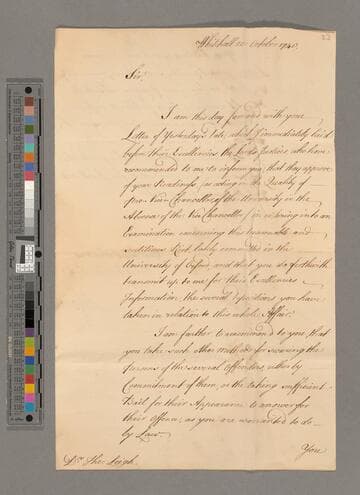 Whitehall October 1740.
Sir,
I am this day favored with your
Letter of Yesterday's date, which I immediately laid
before their Excellencies the Lords Justices, who have
recommended to me to inform you, that they approve
of your Readiness, (as acting in the Quality of
Pro-Vice-Chancellor of the University in the
Absence of the Vice Chancellor) in entering into an
Examination concerning the treasonable and
seditious Riot lately committed in the
University of Oxford, and that you do forthwith
transmit up to me for their Excellencies
Information the several Depositions you have
taken in relation to this whole Affair.
I am farther to recommend to you, that
you take such other methods for securing the
Persons of the several Offenders, either by
Commitment of them, or the taking sufficient
Bail for their Appearance to answer for
their Offence, as you are warranted to do
by Law.
You
Dr. Theo: Leigh.